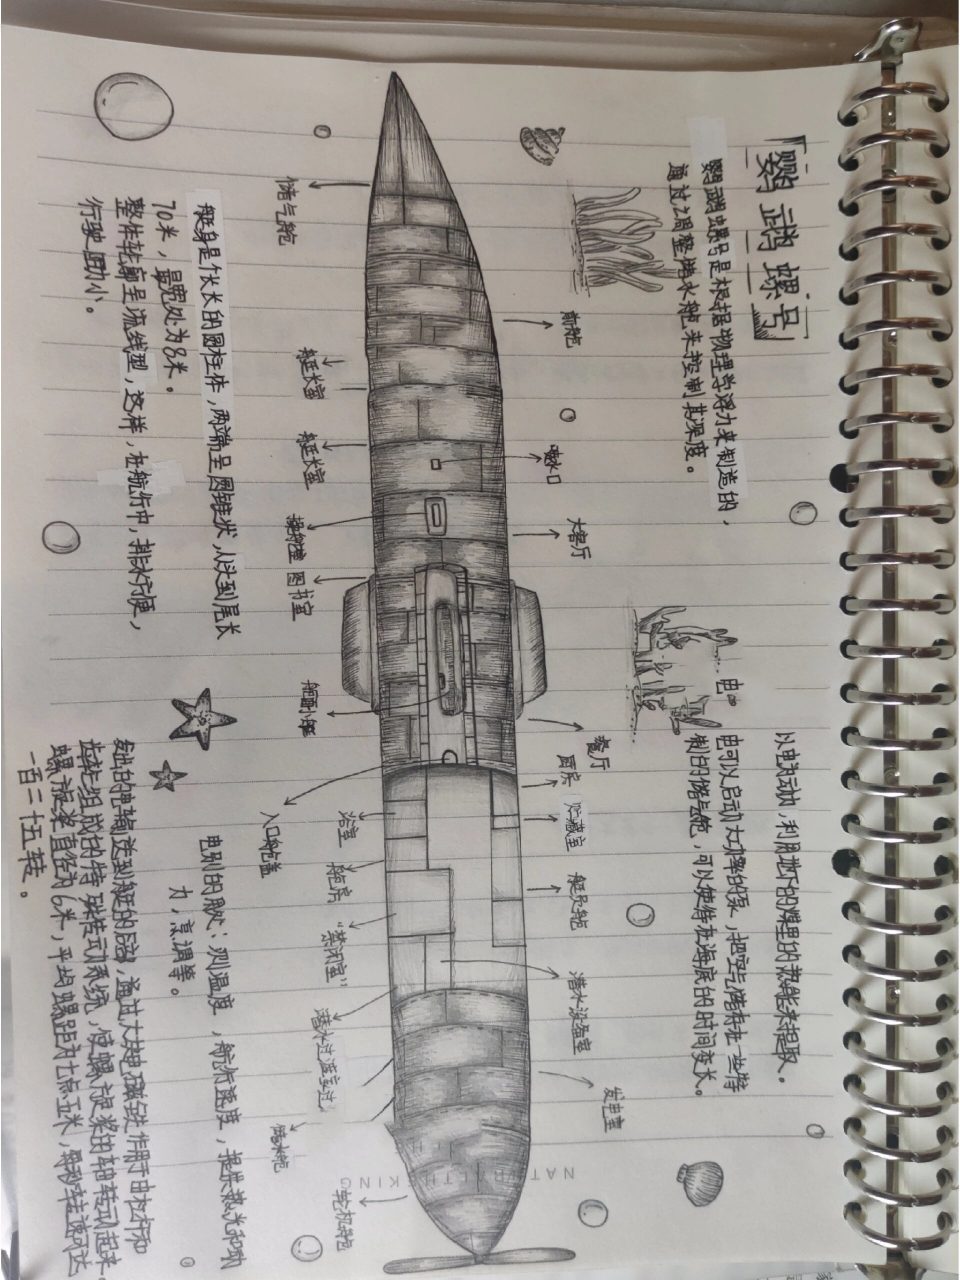 「鹦鹉螺号」
鹦鹉螺号是根据物理学浮力来制造的，
通过调整储水舱来控制其深度。
电
以电为动，利用地下的煤里的热能来提取。
电可以启动大功率的泵，把空气储存在一些特
制的储气舱，可以使待在海底的时间变长。
前舱
吸水口
大客厅
餐厅
厨房
贮藏室
艇员舱
潜水设备室
发电室
储气舱
艇长室
艇长室
操舵室
图书室
艇附小艇
入口舱盖
浴室
舱房
“禁闭室”
潜水过渡室
储水舱
轮机舱
NATURAL THEKING
艇身是很长的圆柱体，两端呈圆锥状，从头到尾长
70米，最宽处为8米。
整体轮廓呈流线型，这样，在航行中，排水方便，
行驶阻力小。
电别的用处：测温度，航行速度，提供热光和动
力，烹调等。
发出的电输送到艇的后部，通过大块电磁铁作用于由杠杆和
齿轮组成的特殊转动系统，使螺旋桨的轴转动起来。
螺旋桨直径为6米，平均螺距为七点五米，每秒转速可达
一百二十五转。